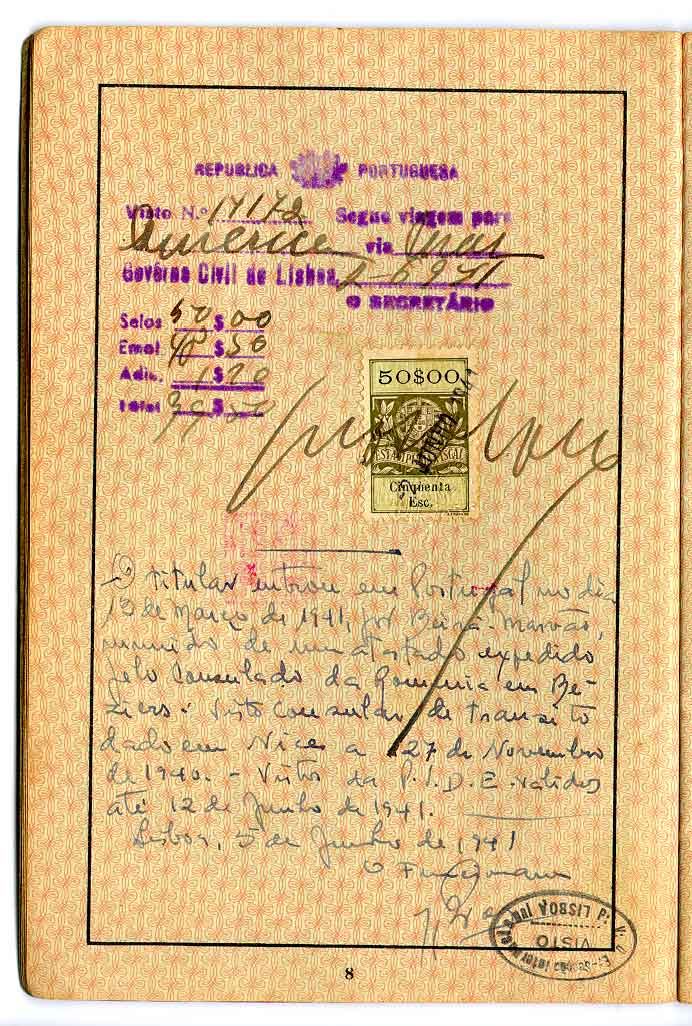 REPUBLICA PORTUGUESA
Visto N.º 17172 Segue viagem para
America via Mar
Govêrno Civil de Lisboa, 2-6941
O SECRETÁRIO
Selos 50 $ 00
Emol. $ 50
Adic. 1 $ 20
Total $ 50
50$00
ESTAMPILHA FISCAL
JUNHO
Cinquenta
Esc.
O titular entrou em Portugal no dia
13 de Março de 1941, por Beirã-Marvão,
munido de um atestado expedido
pelo Consulado da Romenia em Be-
ziers. Visto Consular de transito
dado em Nice a 27 de Novembro
de 1940. - Visto da P.I.D.E. validos
até 12 de Junho de 1941.
Lisboa, 5 de Junho de 1941
O Funcionario
P. V. D. E.
LISBOA
VISTO
8